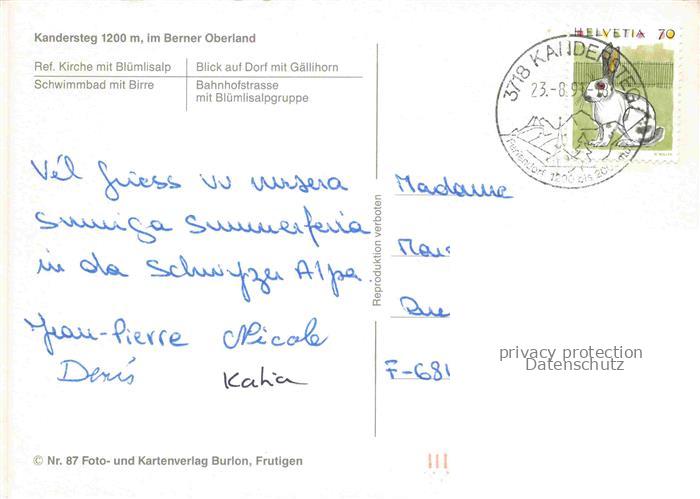 Kandersteg 1200 m, im Berner Oberland
Ref. Kirche mit Blümlisalp
Blick auf Dorf mit Gällihorn
Schwimmbad mit Birre
Bahnhofstrasse
mit Blümlisalpgruppe
HELVETIA 70
3718 KANDERSTEG
Vél Griess vu unsera
Sunniga Summerferia
in da Schwyzer Alpa
Jean-Pierre Nicole
Denis Katia
Reproduktion verboten
Madame
Rue
F-681
privacy protection
Datenschutz
© Nr. 87 Foto- und Kartenverlag Burlon, Frutigen